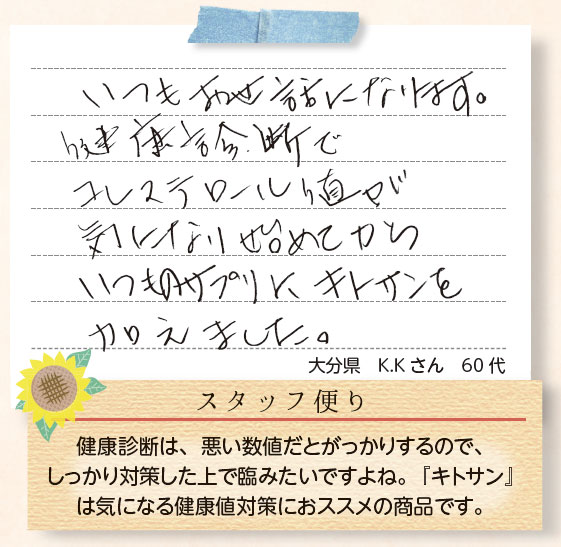 いつもお世話になります。
健康診断で
コレステロール値が
気になり始めてから
いつものサプリに、キトサンを
加えました。
大分県 K.Kさん 60代
スタッフ便り
健康診断は、悪い数値だとがっかりするので、
しっかり対策した上で臨みたいですよね。『キトサン』
は気になる健康値対策におススメの商品です。